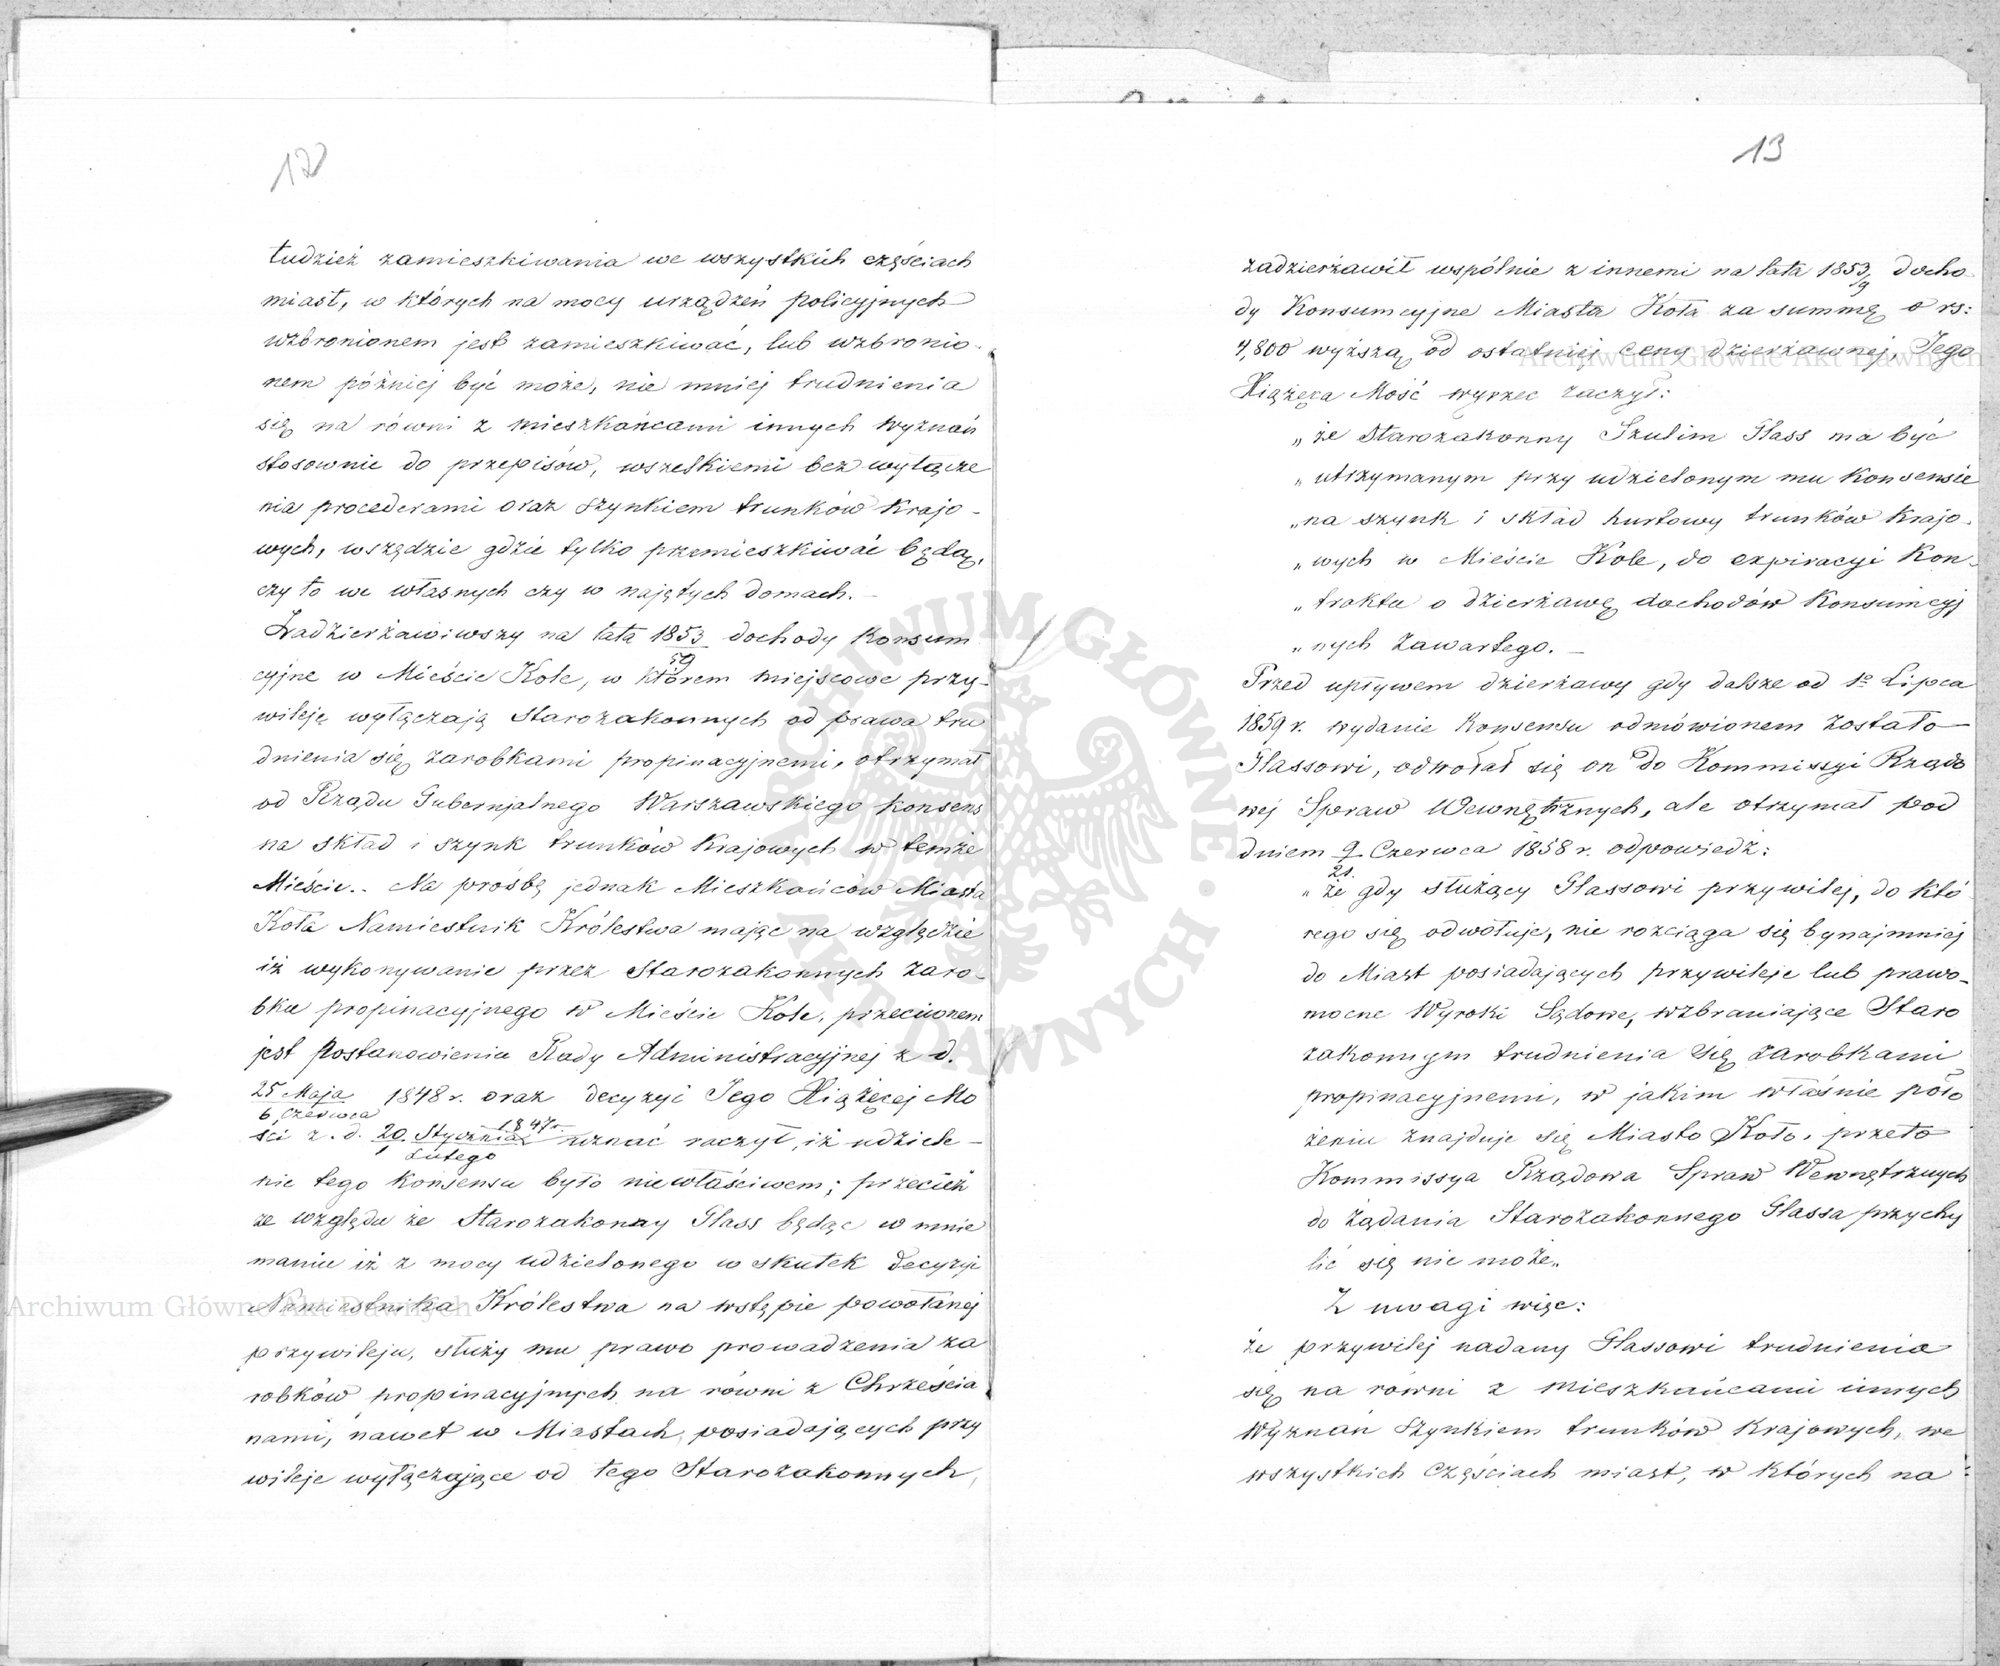 12
tudzież zamieszkiwania we wszystkich częściach
miast, w których na mocy urządzeń policyjnych
wzbronionem jest zamieszkiwać, lub wzbronio-
nem później być może, nie mniej trudnienia
się na równi z mieszkańcami innych wyznań
stosownie do przepisów, wszelkiemi bez wyłącze
nia procederami oraz szynkiem trunków krajo-
wych, wszędzie gdzie tylko przemieszkiwać będą,
czy to we własnych czy w najętych domach. —
Zadzierżawiwszy na lata 1853/59 dochody konsum
cyjne w Mieście Kole, w którem miejscowe przy-
wileje wyłączają Starozakonnych od prawa tru
dnienia się zarobkami propinacyjnemi, otrzymał
od Rządu Gubernjalnego Warszawskiego konsens
na skład i szynk trunków krajowych w temże
Mieście.. Na prośbę jednak Mieszkańców Miasta
Koła Namiestnik Królestwa mając na względzie
iż wykonywanie przez Starozakonnych zaro-
bku propinacyjnego w Mieście Kole, przeciwnem
jest postanowieniu Rady Administracyjnej z d.
25 Maja / 6 Czerwca 1848 r. oraz decyzyi Jego Xiążęcej Mo
ści z. d. 20 Stycznia / 1 Lutego 1847 r. uznać raczył, iż udziele-
nie tego konsensu było niewłaściwem; przecież
ze względu że Starozakonny Glass będąc w mnie
maniu iż z mocy udzielonego w skutek decyzyi
Namiestnika Królestwa na wstępie powołanej
przywileju, służy mu prawo prowadzenia za
robków propinacyjnych na równi z Chrześcia
nami, nawet w Miastach posiadających przy
wileje wyłączające od tego Starozakonnych,
13
zadzierżawił wspólnie z innemi na lata 1853/9 docho-
dy Konsumcyjne Miasta Koła za summę o rs:
4,800 wyższą od ostatniej ceny dzierżawnej, Jego
Xiążęca Mość wyrzec raczył:
„ że Starozakonny Szulim Glass ma być
„ utrzymanym przy udzielonym mu konsensie
„ na szynk i skład hurtowy trunków krajo-
„ wych w Mieście Kole, do expiracyi kon-
„ traktu o dzierżawę dochodów Konsumcyj
„ nych zawartego. —
Przed upływem dzierżawy gdy dalsze od 1º Lipca
1859 r. wydanie konsensu odmówionem zostało
Glassowi, odwołał się on do Kommissyi Rządo
wej Spraw Wewnętrznych, ale otrzymał pod
dniem 9/21 Czerwca 1858 r. odpowiedź:
„ że gdy służący Glassowi przywilej, do któ
rego się odwołuje, nie rozciąga się bynajmniej
do Miast posiadających przywileje lub prawo-
mocne Wyroki Sądowe, wzbraniające Staro
zakonnym trudnienia się zarobkami
propinacyjnemi, w jakim właśnie poło
żeniu znajduje się Miasto Koło, przeto
Kommissya Rządowa Spraw Wewnętrznych
do żądania Starozakonnego Glassa przychy
lić się nie może„
Z uwagi więc:
że przywilej nadany Glassowi trudnienia
się na równi z mieszkańcami innych
Wyznań szynkiem trunków krajowych, we
wszystkich częściach miast, w których na
Archiwum Główne Akt Dawnych
Archiwum Główne Akt Dawnych
ARCHIWUM GŁÓWNE AKT DAWNYCH